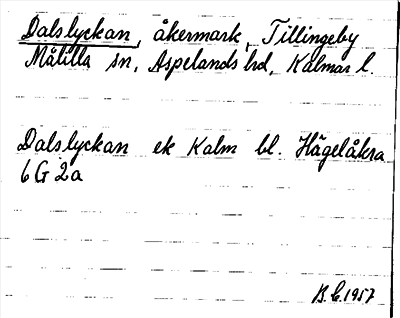 Dalslyckan, åkermark, Tillingeby
Målilla sn, Aspelands hd, Kalmar l.
Dalslyckan ek Kalm bl. Hägelåkra
6 G 2a
B.E. 1957